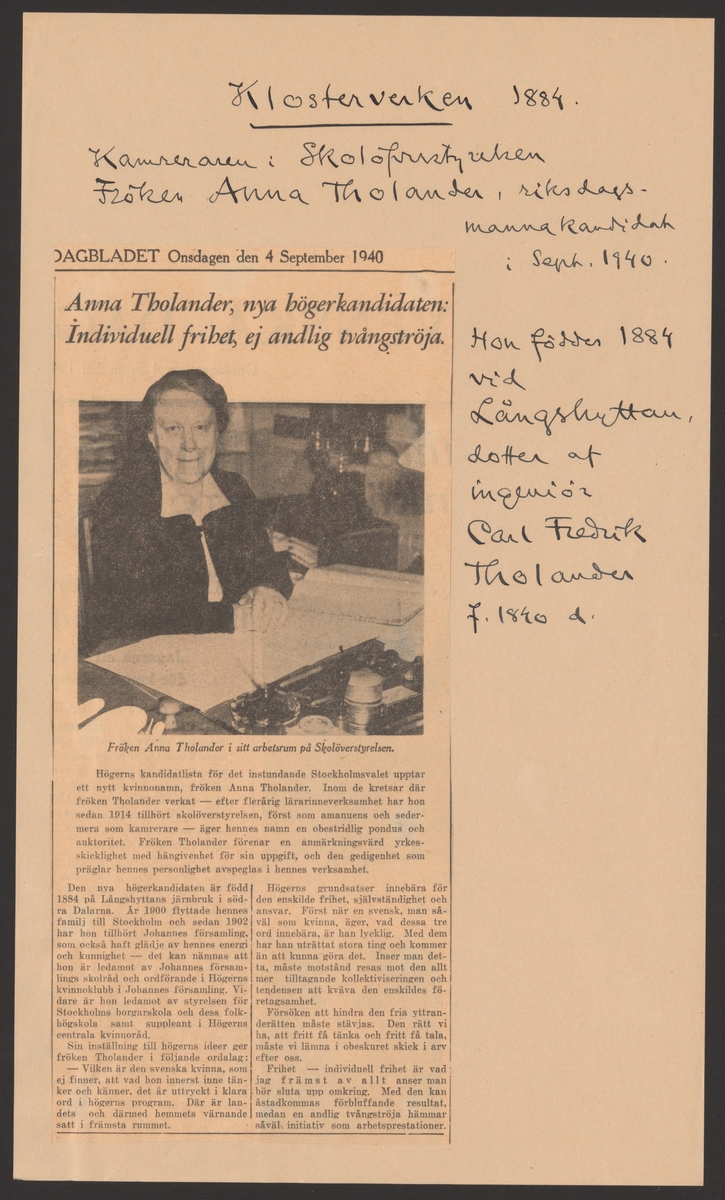 Klosterverken 1884.
Kamreraren i Skolöfverstyrelsen
Fröken Anna Tholander, riksdags-
mannakandidat
i Sept. 1940.
DAGBLADET Onsdagen den 4 September 1940
Anna Tholander, nya högerkandidaten:
Individuell frihet, ej andlig tvångströja.
Hon föddes 1884
vid
Långshyttan,
dotter af
ingeniör
Carl Fredrik
Tholander
f. 1840 d.
Fröken Anna Tholander i sitt arbetsrum på Skolöverstyrelsen.
Högerns kandidatlista för det instundande Stockholmsvalet upptar
ett nytt kvinnonamn, fröken Anna Tholander. Inom de kretsar där
fröken Tholander verkat — efter flerårig lärarinneverksamhet har hon
sedan 1914 tillhört skolöverstyrelsen, först som amanuens och seder-
mera som kamrerare — äger hennes namn en obestridlig pondus och
auktoritet. Fröken Tholander förenar en anmärkningsvärd yrkes-
skicklighet med hängivenhet för sin uppgift, och den gedigenhet som
präglar hennes personlighet avspeglas i hennes verksamhet.
Den nya högerkandidaten är född
1884 på Långshyttans järnbruk i söd-
ra Dalarna. År 1900 flyttade hennes
familj till Stockholm och sedan 1902
har hon tillhört Johannes församling,
som också haft glädje av hennes energi
och kunnighet — det kan nämnas att
hon är ledamot av Johannes försam-
lings skolråd och ordförande i Högerns
kvinnoklubb i Johannes församling. Vi-
dare är hon ledamot av styrelsen för
Stockholms borgarskola och dess folk-
högskola samt suppleant i Högerns
centrala kvinnoråd.
Sin inställning till högerns ideer ger
fröken Tholander i följande ordalag:
— Vilken är den svenska kvinna, som
ej finner, att vad hon innerst inne tän-
ker och känner, det är uttryckt i klara
ord i högerns program. Där är lan-
dets och därmed hemmets värnande
satt i främsta rummet.
Högerns grundsatser innebära för
den enskilde frihet, självständighet och
ansvar. Först när en svensk, man så-
väl som kvinna, äger, vad dessa tre
ord innebära, är han lycklig. Med dem
har han uträttat stora ting och kommer
än att kunna göra det. Inser man det-
ta, måste motstånd resas mot den allt
mer tilltagande kollektiviseringen och
tendensen att kväva den enskildes fö-
retagsamhet.
Försöken att hindra den fria yttran-
derätten måste stävjas. Den rätt vi
ha, att fritt få tänka och fritt få tala,
måste vi lämna i obeskuret skick i arv
efter oss.
Frihet — individuell frihet är vad
jag främst av allt anser man
bör sluta upp omkring. Med den kan
åstadkommas förbluffande resultat,
medan en andlig tvångströja hämmar
såväl initiativ som arbetsprestationer.